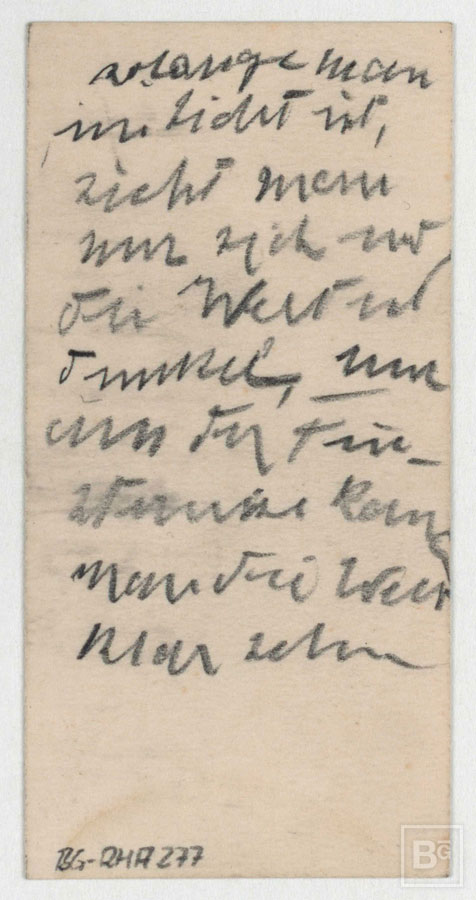 solange man
im Licht ist,
sieht man
nur sich und
die Welt ist
dunkel, nur
aus der Fin-
sternise kann
man die Welt
klar sehen
BG-RHA 277
BG